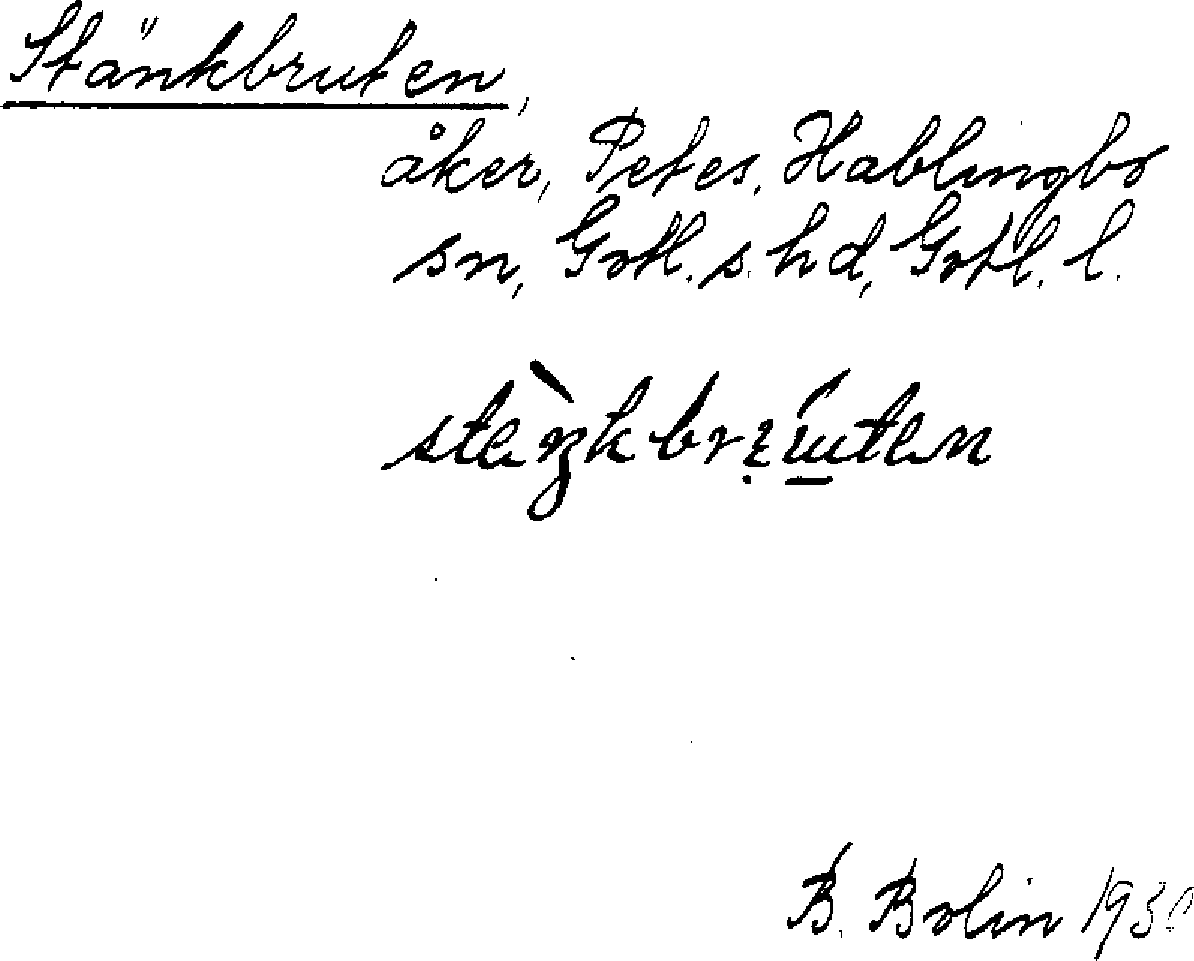 Stänkbruten,
åker, Petes, Hablingbo
sn, Gotl. s. hd, Gotl. l.
B. Bolin 1930